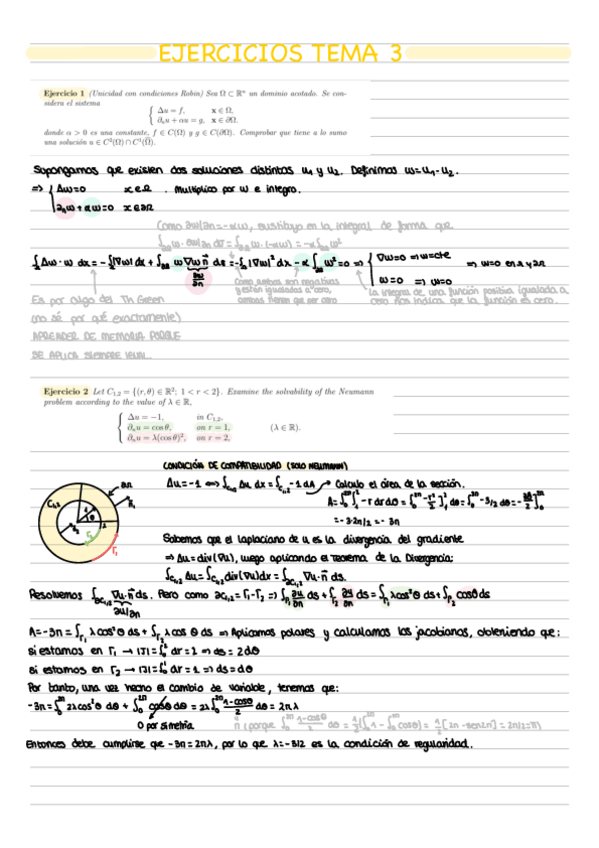 EJERCICIOS TEMA 3
Ejercicio 1 (Unicidad con condiciones Robin) Sea Ω ⊂ ℝⁿ un dominio acotado. Se con-
sidera el sistema
Δu = f, x ∈ Ω,
∂ₙu + αu = g, x ∈ ∂Ω.
donde α > 0 es una constante, f ∈ C(Ω) y g ∈ C(∂Ω). Comprobar que tiene a lo sumo
una solución u ∈ C²(Ω) ∩ C¹(Ω̄).
Supongamos que existen dos soluciones distintas u₁ y u₂. Definimos w=u₁-u₂.
=> Δw=0 x∈Ω . Multiplico por w e integro.
∂ₙw+αw=0 x∈∂Ω
Como ∂w/∂n=-αw, sustituyo en la integral de forma que
∫∂Ω w·∂w/∂n dσ = ∫∂Ω w·(-αw) = -α∫∂Ω w²
∫Ω Δw·w dx = -∫Ω|∇w|² dx + ∫∂Ω w∇w n⃗ ds = -∫Ω|∇w|² dx - α∫∂Ω w² = 0 => ∇w=0 => w=cte
w=0 => w=0
=> w=0 en Ω y ∂Ω
∂w/∂n
Como ambas son negativas
y están igualadas a cero,
ambas tienen que ser cero
La integral de una función positiva igualada a
cero nos indica que la función es cero.
Es por algo del Th Green
(no sé por qué exactamente)
APRENDER DE MEMORIA PORQUE
SE APLICA SIEMPRE IGUAL.
Ejercicio 2 Let C₁,₂ = {(r, θ) ∈ ℝ²; 1 < r < 2}. Examine the solvability of the Neumann
problem according to the value of λ ∈ ℝ,
Δu = −1, in C₁,₂,
∂ₙu = cos θ, on r = 1, (λ ∈ ℝ).
∂ₙu = λ(cos θ)², on r = 2,
CONDICIÓN DE COMPATIBILIDAD (SOLO NEUMANN)
Δu=-1 <=> ∫C₁,₂ Δu dx = ∫C₁,₂ -1 dA → Calculo el área de la sección.
A = ∫₀²ᐪ ∫₁² -r dr dθ = ∫₀²ᐪ [-r²/2]₁² dθ = ∫₀²ᐪ -3/2 dθ = -[3θ/2]₀²ᐪ
= -3·2π/2 = -3π
Sabemos que el laplaciano de u es la divergencia del gradiente
=> Δu = div(∇u), luego aplicando el teorema de la Divergencia:
∫C₁,₂ Δu = ∫C₁,₂ div(∇u) dx = ∫∂C₁,₂ ∇u·n⃗ ds.
Resolvemos ∫∂C₁,₂ ∇u·n⃗ ds. Pero como ∂C₁,₂ = Γ₁-Γ₂ => ∫Γ₁ ∂u/∂n ds + ∫Γ₂ ∂u/∂n ds = ∫Γ₁ λcos²θ ds + ∫Γ₂ cosθ ds
∂u/∂n
A = -3π = ∫Γ₁ λcos²θ ds + ∫Γ₂ λ cos θ ds => Aplicamos polares y calculamos los jacobianos, obteniendo que:
si estamos en Γ₁ → |J| = ∫₀² dr = 2 => ds = 2dθ
si estamos en Γ₂ → |J| = ∫₀¹ dr = 1 => ds = dθ
Por tanto, una vez hecho el cambio de variable, tenemos que:
-3π = ∫₀²ᐪ 2λcos²θ dθ + ∫₀²ᐪ cosθ dθ = 2λ∫₀²ᐪ 1-cosθ/2 dθ = 2πλ
0 por simetría
π (porque ∫₀²ᐪ 1-cosθ/2 dθ = 1/2(∫₀²ᐪ 1 - ∫₀²ᐪ cosθ) = 1/2[2π - sen2π] = 2π/2 = π)
Entonces debe cumplirse que -3π = 2πλ, por lo que λ = -3/2 es la condición de regularidad.